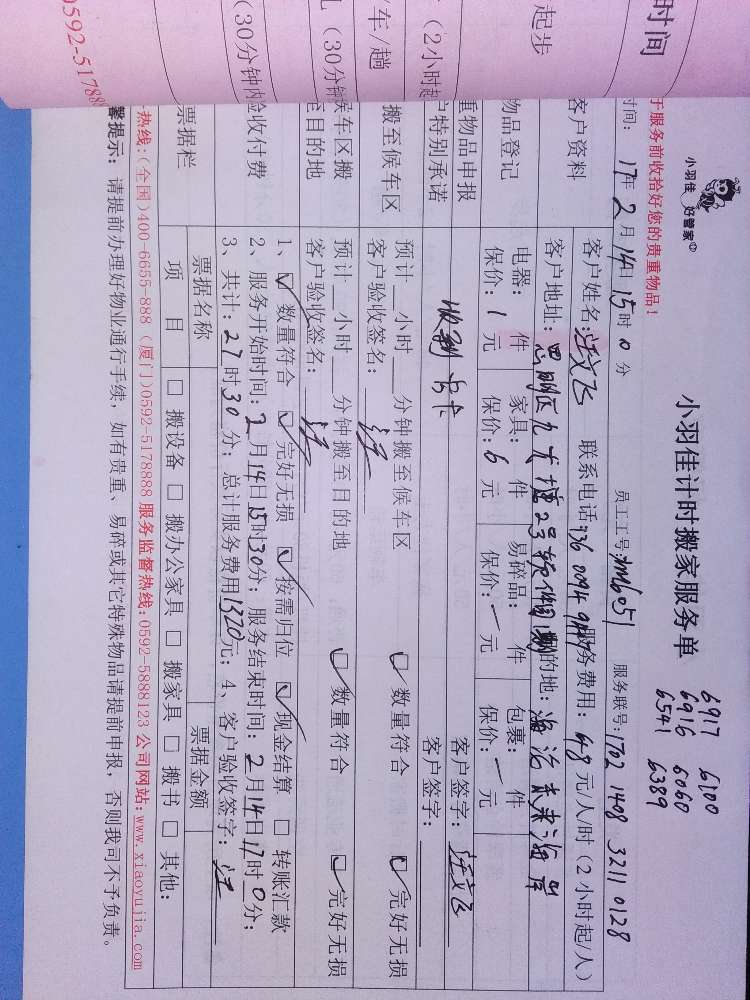 时间
起步
(2小时起
车/趟
(30分钟
(30分钟内
0592-517888
小羽佳
好管家
小羽佳计时搬家服务单
6917 6100
6916 6060
6541 6389
于服务前收拾好您的贵重物品!
时间: 17年 2月14日 15时 0分 员工工号: 服务联号: 1702 1408 3211 0128
客户资料
客户姓名: 汪文飞 联系电话: 服务费用: 48元/人/时(2小时起/人)
客户地址: 思明区 2号 目的地: 海沧未来海岸
物品登记
电器: 件 家具: 件 易碎品: 件 包裹: 件
保价: 1元 保价: 6元 保价: 一元 保价: 一元
重物品申报
客户签字: 汪文飞
户特别承诺
客户签字:
搬至候车区
预计__小时__分钟搬至候车区 数量符合 完好无损
客户验收签名: 汪
候车区搬
至目的地
预计__小时__分钟搬至目的地 数量符合 完好无损
客户验收签名: 汪
验收付费
1、 数量符合 完好无损 按需归位 现金结算 转账汇款
2、服务开始时间: 2月14日15时30分; 服务结束时间: 2月14日17时0分;
3、共计: 27时30分; 总计服务费用1320元; 4、客户验收签字: 汪
票据栏
票据名称 票据金额
项 目 搬设备 搬办公家具 搬家具 搬书 其他:
热线:(全国)400-6655-888 (厦门)0592-5178888 服务监督热线:0592-5888123 公司网站:www.xiaoyujia.com
馨提示: 请提前办理好物业通行手续,如有贵重、易碎或其它特殊物品请提前申报,否则我司不予负责。